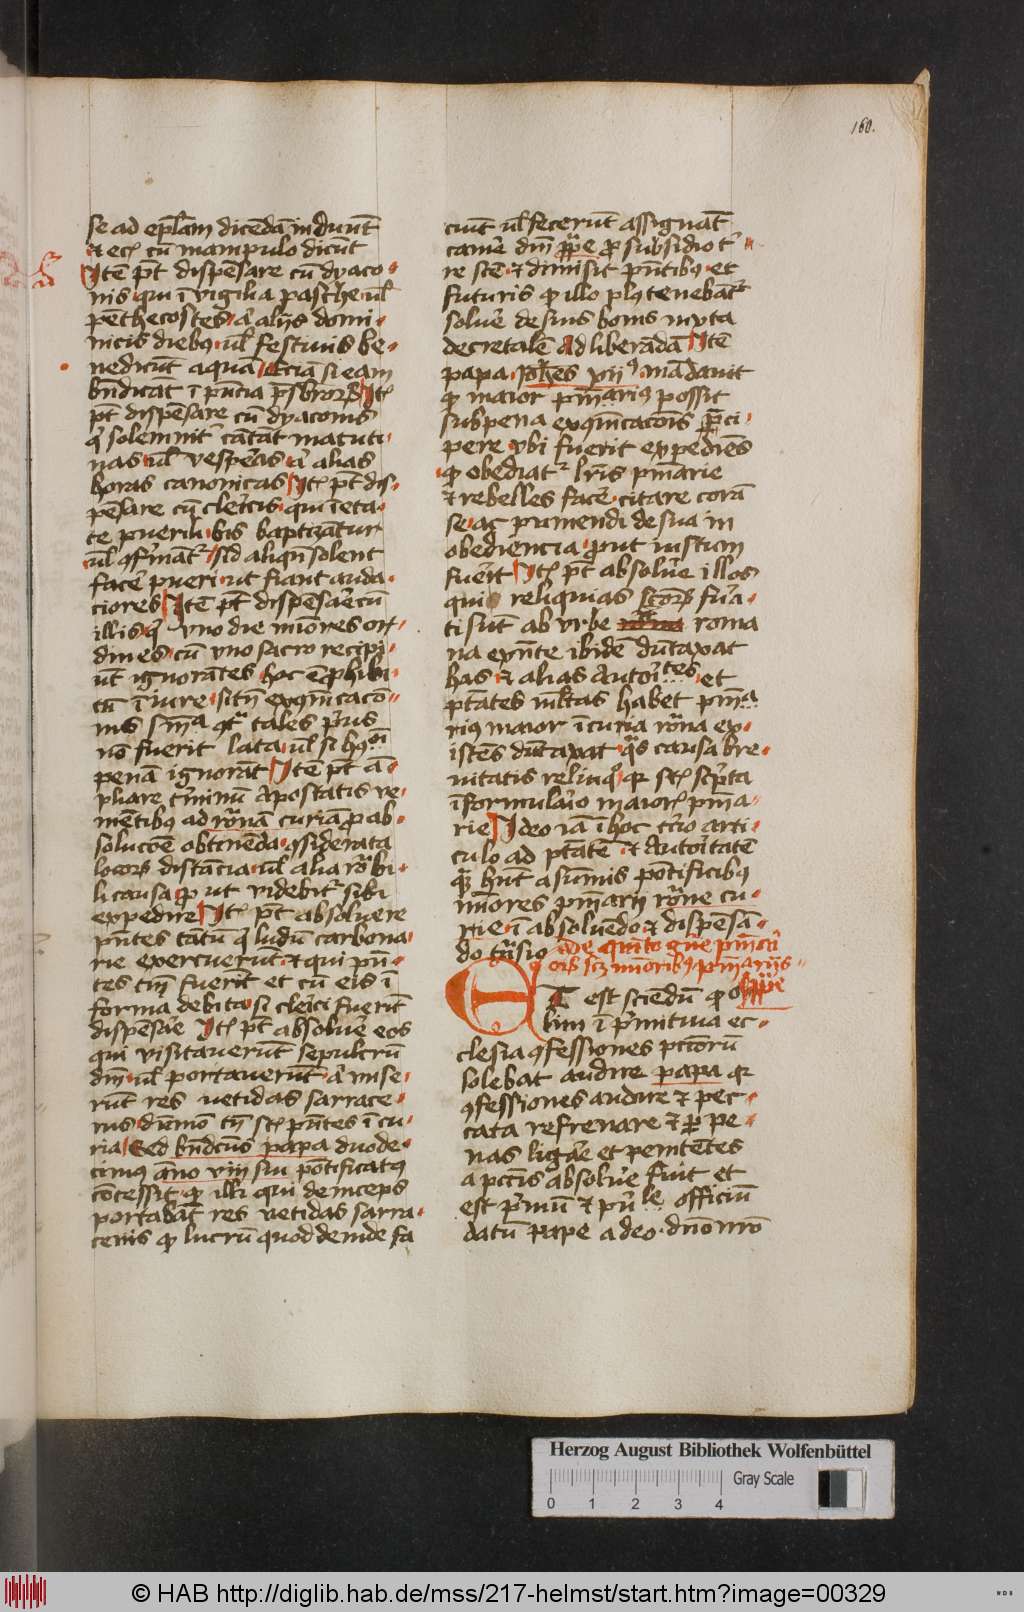 160.
se ad epl̄am dicēdā induūt
et ec̄ cū manipulo dicūt
Itē pt̄ dispēsare cū dyaco
nis qui ī vigilia pasche ul̄
pēthecostes a aliis domi
nicis diebꝫ ul̄ festiuis be
nedicūt aquā eciā si eam
bn̄dicāt ī
pt̄ dispēsare cū dyaconis
solemnit̄ cātāt matuti
nas ul̄ vesperas a alias
horas canonicas Itē pt̄ dis
pēsare cū clericis qui ī eta
te puerili bis baptizātur
ul̄ ꝯfirmātr̄ sic̄ aliqn̄ solent
facē pueri ut fiant auda
ciores Itē pt̄ dispēsare cū
illis qui vno die minores or
dines cū vno sacro recipi
ūt ignorātes hoc ēē phibi
tū ī iure
nō fuerit lata ul̄ si
penā ignorāt Itē pt̄ ā
pliare t̄minū apostatis ve
niētibꝫ ad ro͞nā curiā ꝓ ab
soluc̄oē obtinēda ꝯsiderata
locorꝝ distācia ul̄ alia ro͞bi
li causa ꝓ ut videbit̄ sibi
expedire Itē pt̄ absoluere
pn̄tes tātū qui ludū carbona
rie exercuerūt et qui pn̄
tes tm̄ fuerīt et cū eis ī
forma debita si cleici fuerīt
dispēsare Itē pt̄ absoluē eos
qui visitauerūt sepulcrū
dn̄i ul̄ portauerūt a mise
rūt res vetidas sarrace
nis dūmō tn̄ sīt pn̄tes ī cu
ria Sed bn̄dc̄us papa duode
cimꝰ āno viij sui pōtificatꝰ
cōcessit ꝙ illi qui deinceps
portabāt res vetidas sarra
cenis ꝙ lucrū quod deinde fa
ciūt ul̄ fecerūt assignāt
camē dn̄i pp̄e ꝓ subsidio t̄
re scē et dimisit pn̄tibꝫ et
futuris ꝙ illo plꝰ tenebāt̄
soluē de suis bonis iuxta
decretalē Ad liberādā Itē
papa Joh̄es xxijꝰ mādauit
ꝙ maior pn̄iariꝰ possit
sub pena excōicacōis p̄ci
pere vbi fuerit expediēs
ꝙ obediat̄ lr̄is pn̄iarie
et rebelles facē citare corā
se ac puniendi de sua in
obediencia ꝓut iustum
fuerit Itē pt̄ absoluē illos
qui reliquias sc̄orꝝ fura
ti sūt ab vrbe roma
na exn̄te ibidē dūtaxat
has et alias autori̅tes et
ptātes ml̄tas habet pn̄ia
riꝰ maior ī curia ro͞na ex
istēs dūtaxat q̄s causa bre
uitatis relinq̄o qr̄ sīt sc̄pta
ī formulario maiorꝭ pn̄ia
rie Ideo iā ī hoc t̄cio arti
culo ad ptātē et autoritatē
quā hn̄t a sūmis pōtificibꝫ
minores pn̄iarij ro͞ne cu
rie ī absoluēdo et dispēsā
do trāsio De quīto gn̄e
scz minoribꝫ pn̄iariis
pp̄e
ET est sciēdū ꝙ o
lim ī p̄mitiua ec
clesia ꝯfessiones pctōrū
solebat audire papa qr̄
ꝯfessiones audire et pec
cata refrenare et ꝑ pe
nas ligare et penitētes
a pctīs absoluē fuit et
est p̄mū et officiū
datū Pape a deo dn̄o nr̄o
Herzog August Bibliothek Wolfenbüttel
Gray Scale
0 1 2 3 4
© HAB http://diglib.hab.de/mss/217-helmst/start.htm?image=00329